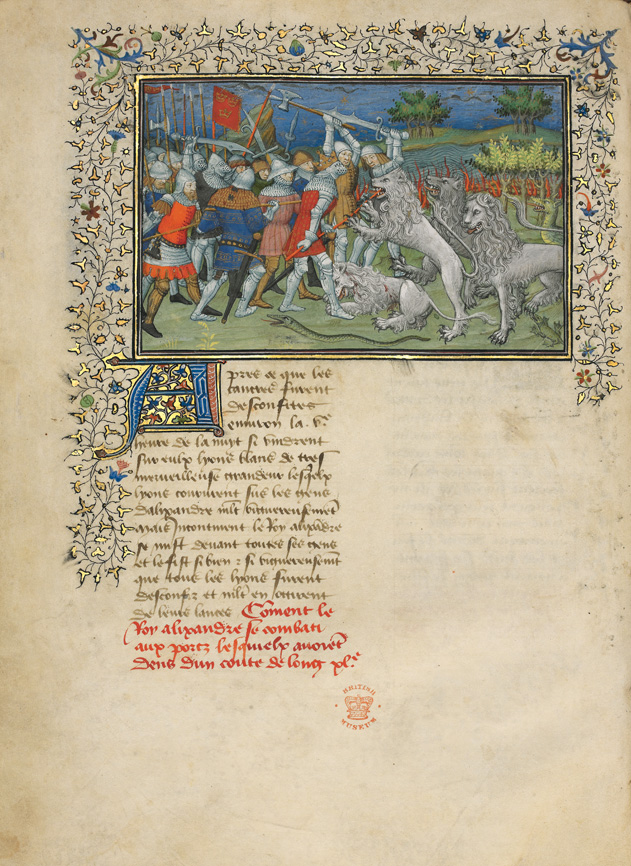 Apres ce que les
cancres furent
desconfites
enuiron la
heure de la nuyt si vindrent
sur eulx lyons blans de tres
merueilleuse grandeur lesquelx
lyons coururent sus les gens
dalixandre mlt vigueureusemēt
mais incontinent le Roy alixādre
se mist deuant toutes ses gens
et le fist si bien ⁊ si vigueureusemt
que tous les lyons furent
desconfiz et mlt en
de leurs lances Coment le
Roy alixandre se combati
aux porcz lesquelx auoiēt
dens dun coute de long
BRITISH
MUSEUM